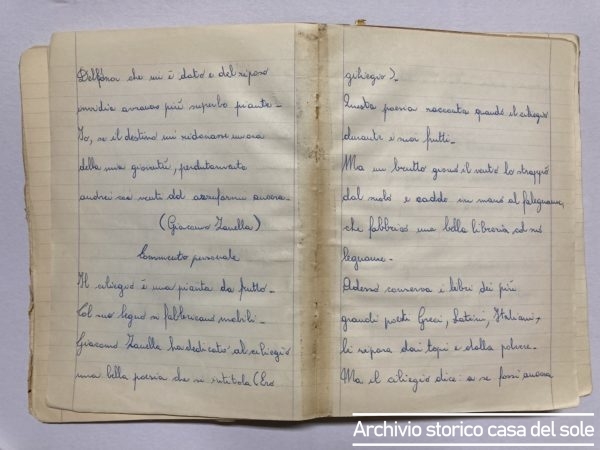 Dell'opra che mi è dato e del riposo
invidia avranno più superbe piante -
Io, se il destino mi ridonasse un'ora
della mia gioventù,
andrei coi venti ad azzuffarmi ancora -
(Giacomo Zanella)
Commento personale
Il ciliegio è una pianta da frutto -
Col suo legno si fabbricano mobili -
Giacomo Zanella ha dedicato al ciliegio
una bella poesia che si intitola (Ero
ciliegio) -
Questa poesia racconta quando il ciliegio
durante i suoi frutti -
Ma un brutto giorno il vento lo strappò
dal suolo e cadde in mano al falegname,
che fabbricò una bella libreria, col suo
legname -
Adesso conserva i libri dei più
grandi poeti Greci, Latini, Italiani,
li ripara dai topi e dalla polvere -
Ma il ciliegio dice: a se fossi ancora
Archivio storico casa del sole